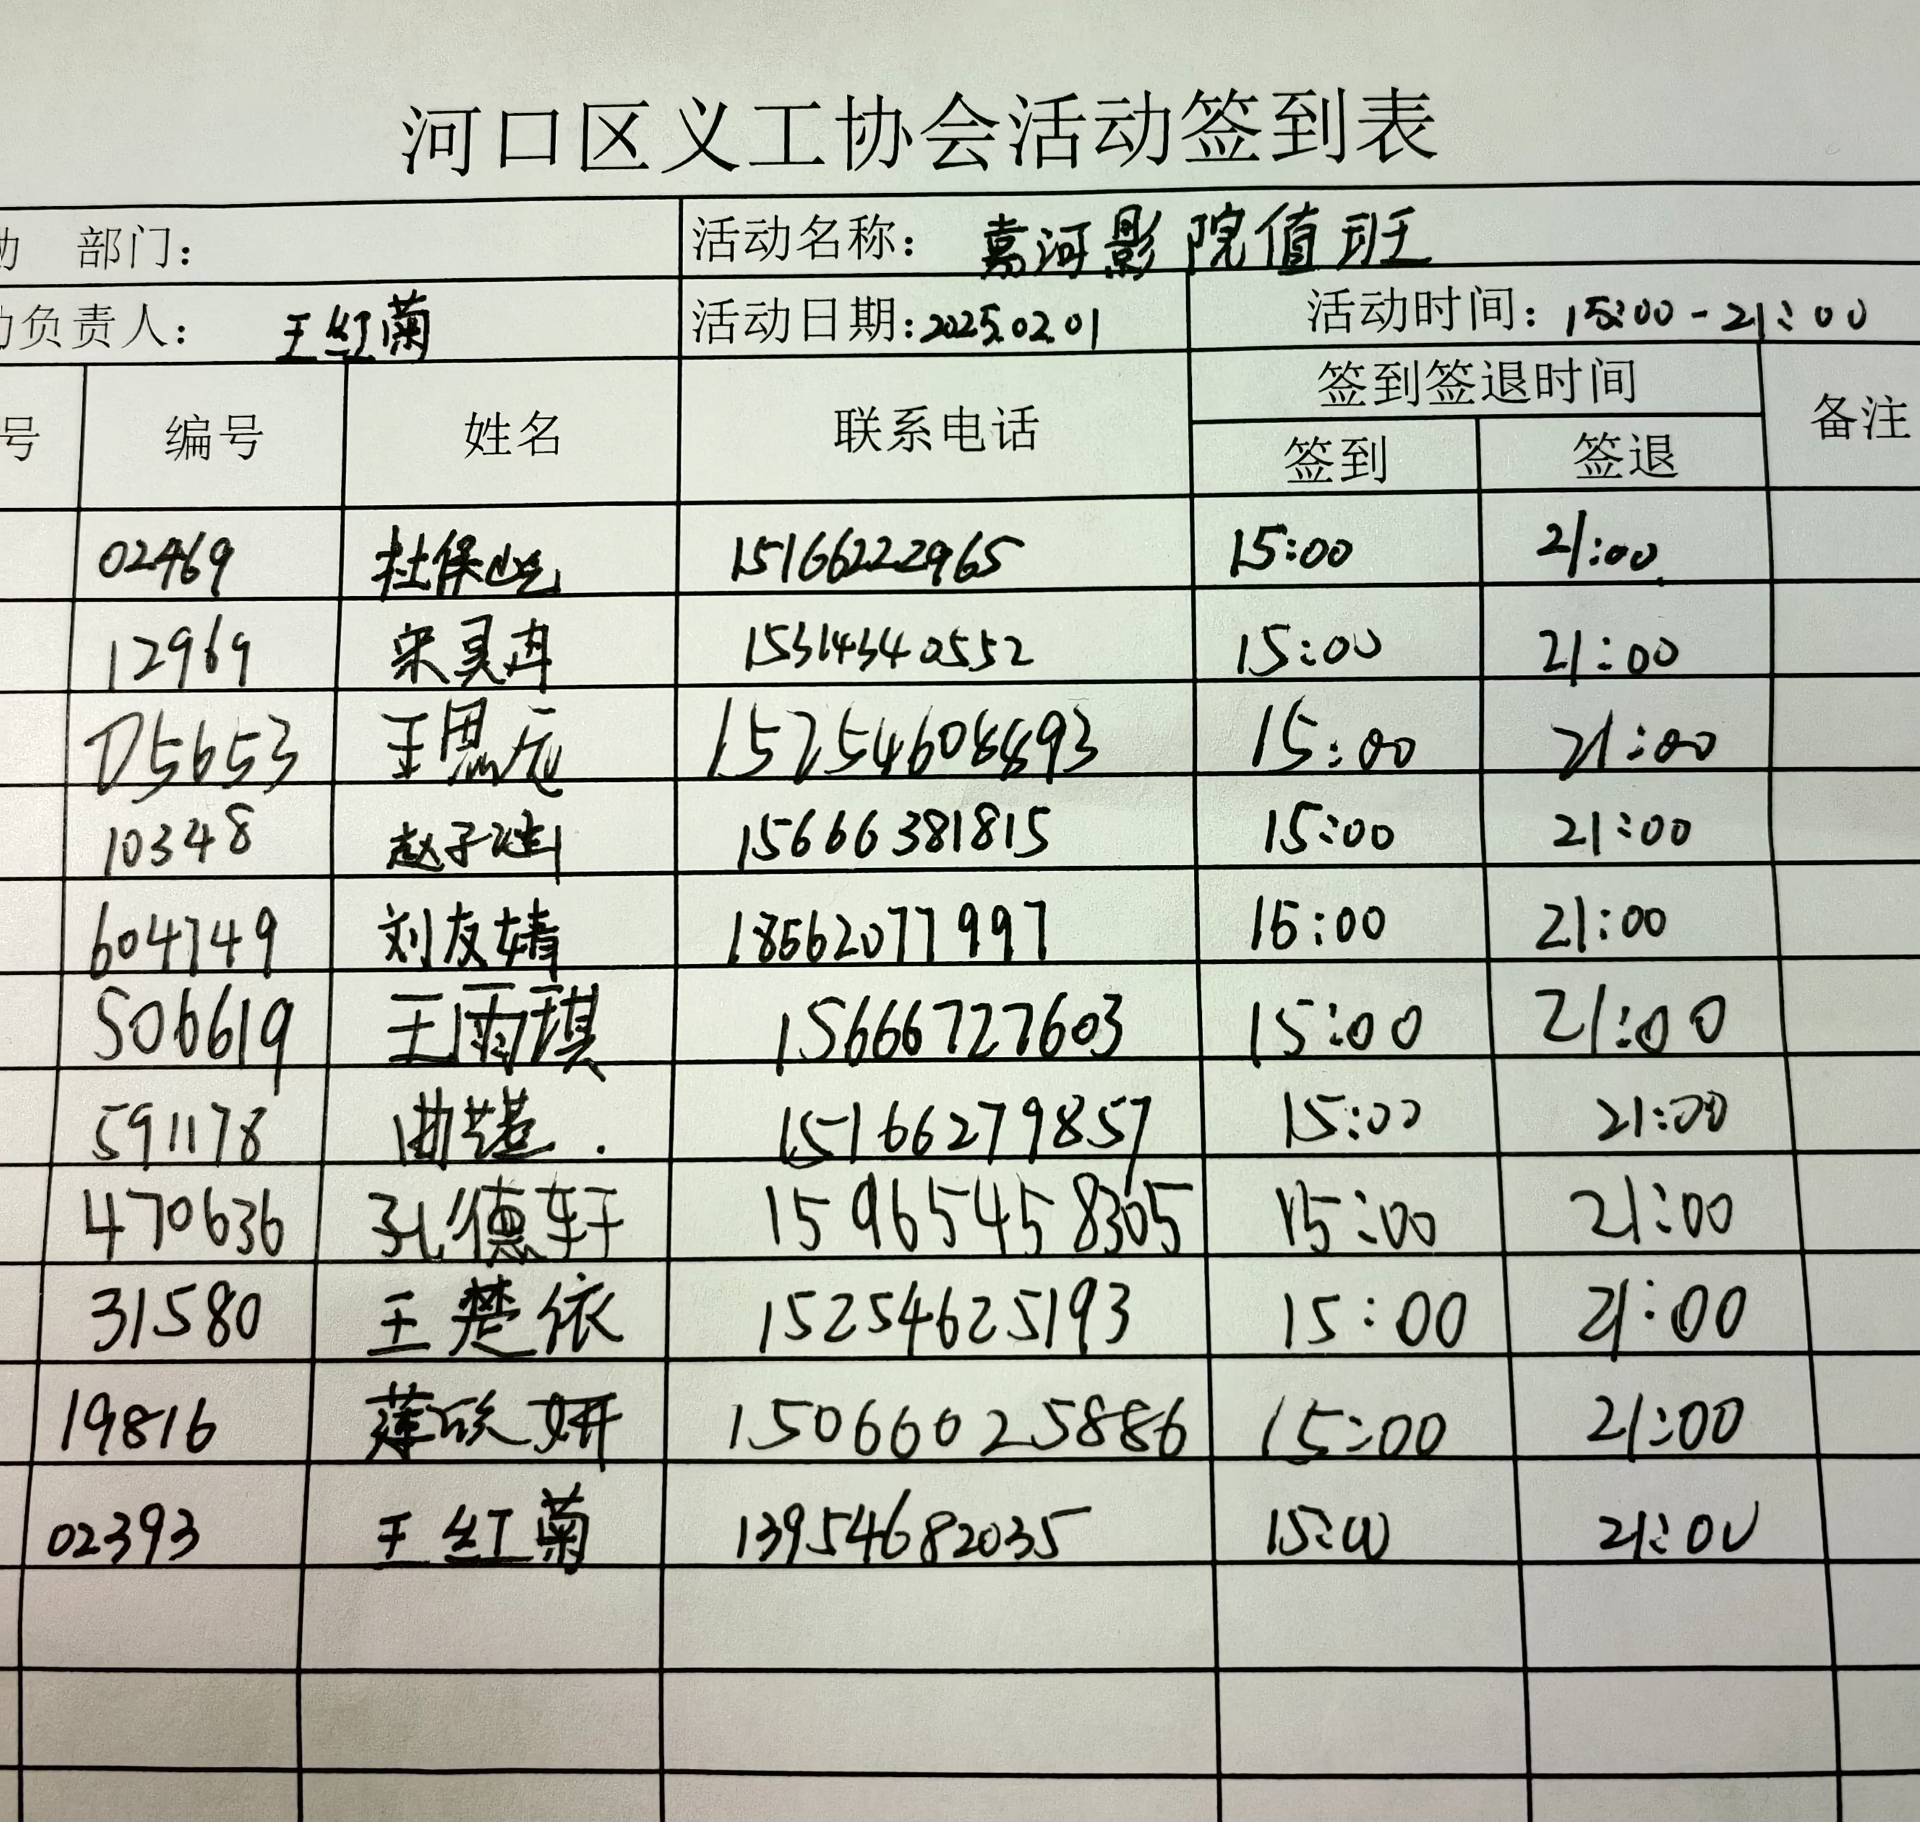 河口区义工协会活动签到表
动 部门：
活动名称： 嘉河影院值班
动负责人： 王红菊
活动日期：2025.02.01
活动时间：15:00-21:00
号 编号 姓名 联系电话 签到签退时间 备注
签到 签退
02469 杜保屹 15166222965 15:00 21:00
12969 宋昊冉 15314340552 15:00 21:00
05653 王思 15:00 21:00
10348 赵子 15666381815 15:00 21:00
604749 刘友婧 18562077997 15:00 21:00
506619 王雨琪 15666727603 15:00 21:00
591178 曲 15166279857 15:00 21:00
470636 孔德轩 15965458305 15:00 21:00
31580 王楚依 15254625193 15:00 21:00
19816 薄欣妍 15066025886 15:00 21:00
02393 王红菊 13954682035 15:00 21:00